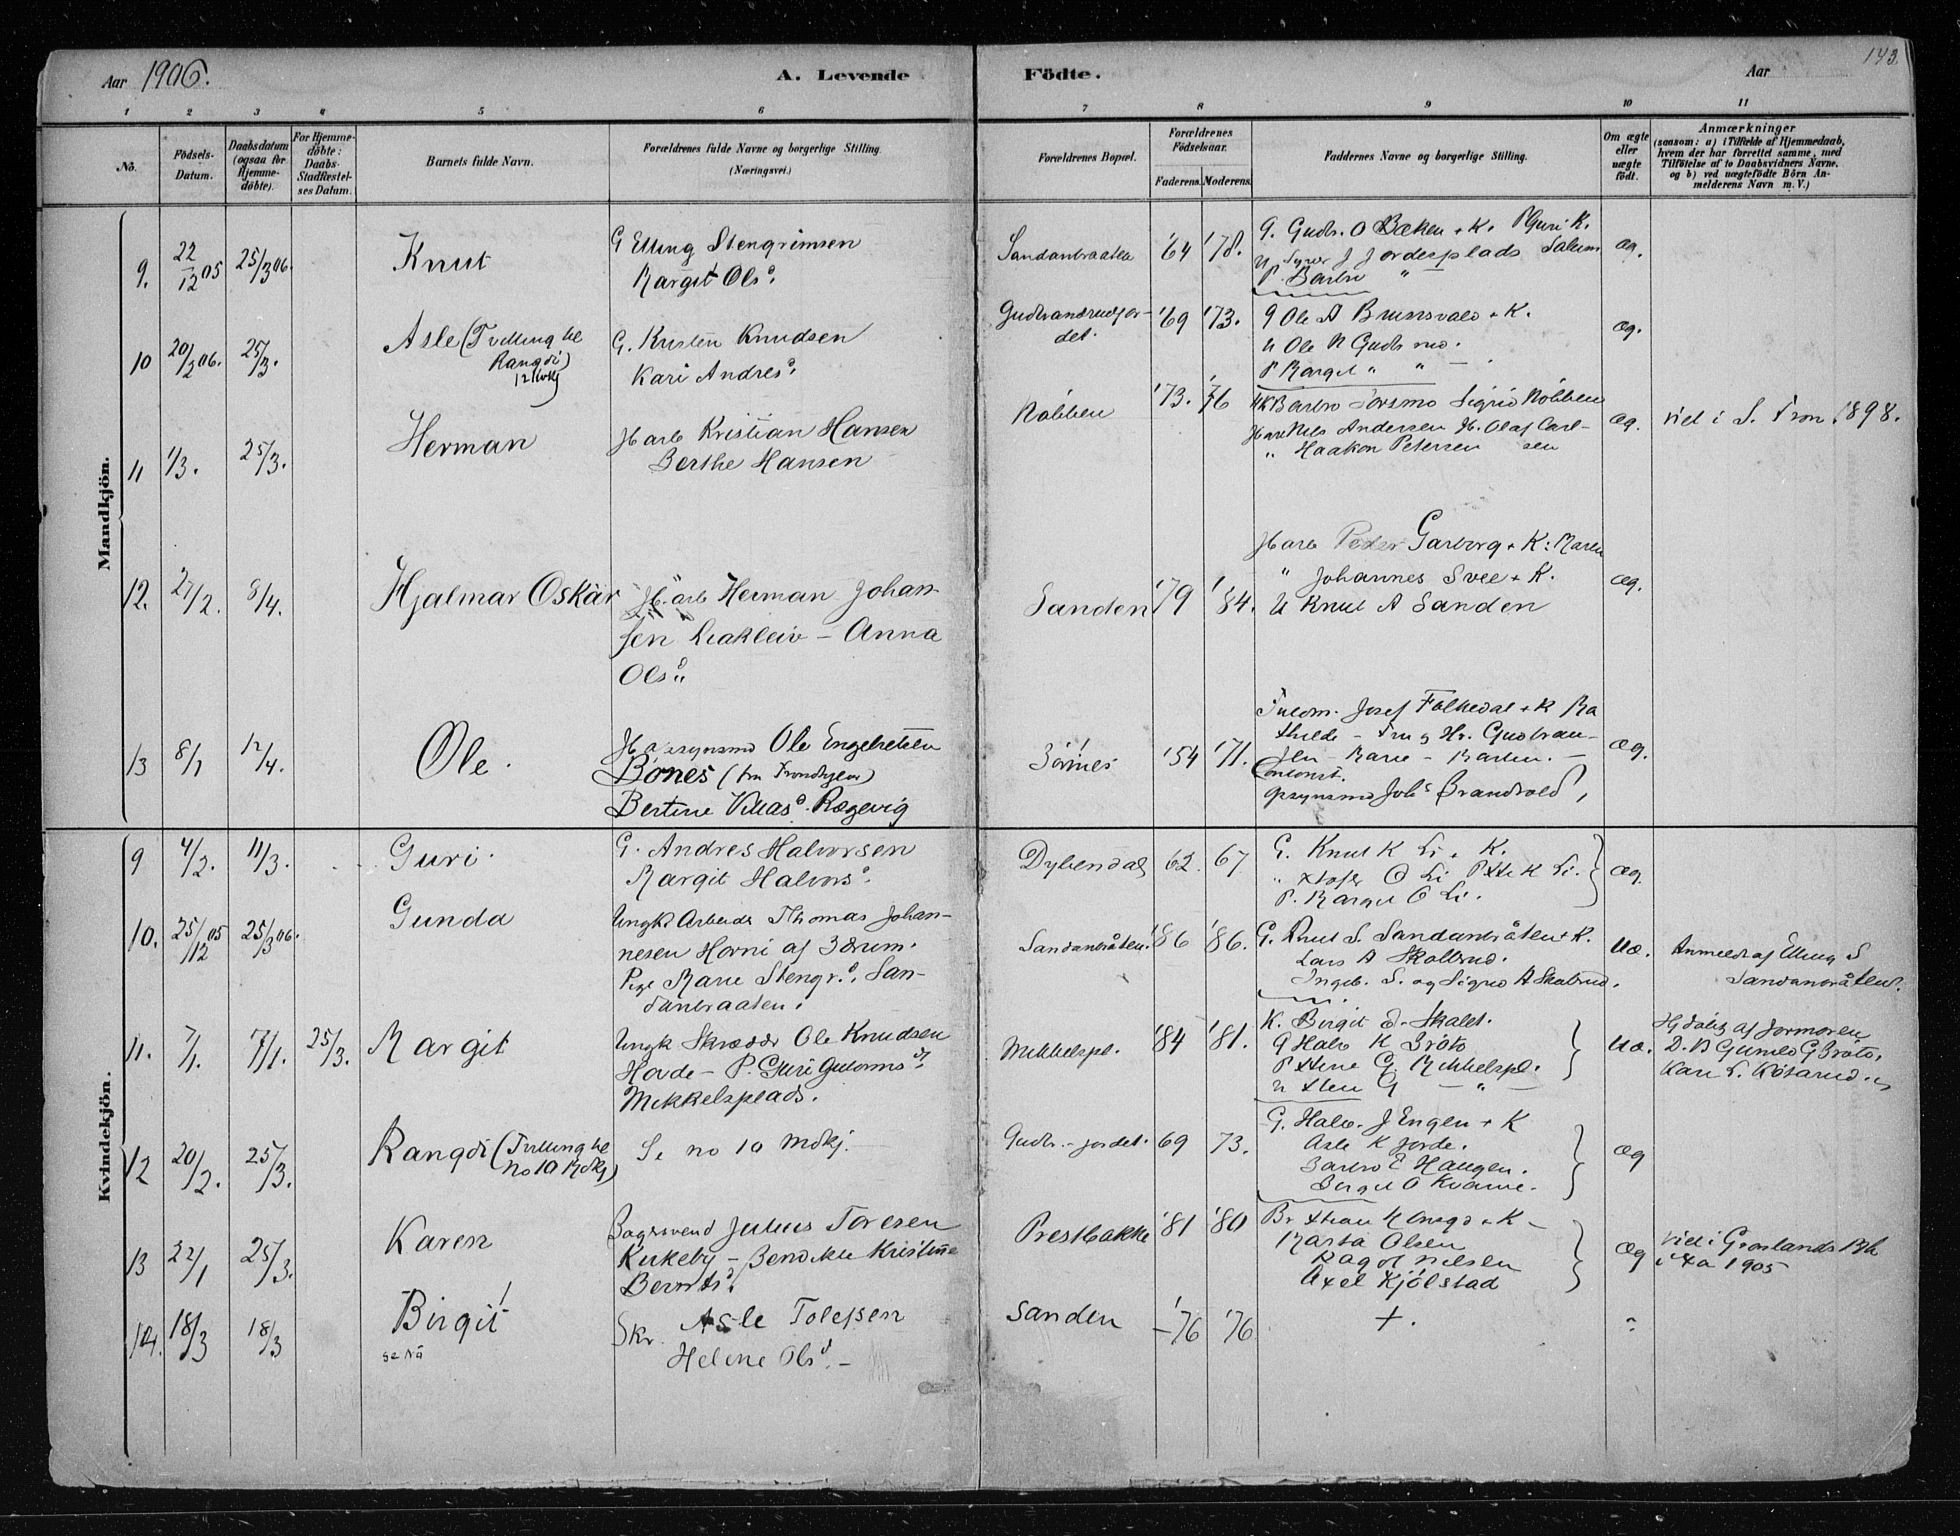 Aar 1906.
A. Levende
Födte.
Aar
143.
1 2 3 4 5 6 7 8 9 10 11
No.
Födsels-
Datum.
Daabsdatum
(ogsaa for
Hjemme-
döbte).
For Hjemme-
döbte:
Daabs-
Stadfæstel-
ses Datum.
Barnets fulde Navn.
Forældrenes fulde Navne og borgerlige Stilling
(Næringsvei.)
Forældrenes Bopæl.
Forældrenes
Födselsaar.
Faderens. Moderens.
Faddernes Navne og borgerlige Stilling.
Om ægte
eller
uægte
födt.
Anmærkninger
(saasom: a) i Tilfælde af Hjemmedaab,
hvem der har forrettet samme, med
Tilföielse af to Daabsvidners Navne,
og b) ved uægtefödte Börn An-
melderens Navn m. V.)
Mandkjön.
9. 22/12 05 25/3 06. Knut
G Elling Stengrimsen
Margit Olsd.
Sandanbraaten '64 '78.
G. Gudbr. O Bækken + K. P Guri K.
U Syver J Jordesplads
P. Barbro "
Æg.
10 20/2 06. 25/3. Asle (Tvilling til
Rangdi)
12 Kvkj
G. Kristen Knudsen
Kari Andresd.
Gudbrandsrudjor-
det. '69 '73.
G Ole A Brunsvold + K.
U Ole N Gudbr rud.
P Margit " " —
Æg.
11 1/3. 25/3. Herman
Harb Kristian Hansen
Berthe Hansen
Nöbben '73. '76
Barbro Torsmo Sigrid Nöbben
Harb Nils Andersen H. Olaf Carl-
" Haakon Petersen sen
Æg. viet i S. Fron 1898.
12. 27/2. 8/4. Hjalmar Oskar
H. arb Herman Johan-
sen Liakleiv — Anna
Olsd.
Sanden '79 '84.
Harb Peder Garborg + K: Maren
" Johannes Svee + K.
U Knut A Sanden
Æg.
13 8/1 12/4. Ole.
Ole Engebretsen
Bönes (fra Trondhjem)
Bertine Rægevig
Sörnes '54 '71.
Josef Folkedal + K Ma
thilde — Fru og Hr. Gudbran-
sen Marie — Marten. —
Const.
opsynsmd Johs Brandvold,
Æg.
Kvindekjön.
9 4/2. 11/3. Guri.
G. Andres Halvorsen
Margit Halvorsd.
Dybendal 62. 67.
G. Knut K Li + K.
" O Li P K Li.
P. Margit O Li.
Æg.
10. 25/12 05 25/3 06. Gunda
Ungk Arbeidr Thomas Johan-
nesen Horni af Bærum.
Pige Marie Stengr.d. San-
danbraaten.
Sandanbråten. '86 '86.
G. Knut S. Sandanbråten + K.
Lars A Skollerud.
Ingeb. S. og Sigrid A Skollerud.
Uæ.
Anmeldt af Elling S
Sandanbråten.
11. 7/1. 7/1. 25/3. Margit
Ungk Skrædder Ole Knudsen
Hovde — P. Guri Gulormsd.
Mikkelsplads.
Mikkelspl. '84 '81.
K. Birgit E. Skalet.
G Halv K Bråto
P G. Mikkelspl.
U G — " —
Uæ.
Hjdöbt af Jormoren
D. B Gunild G Bråto,
Kari L.
12 20/2. 25/3. Rangdi (Tvilling til
No 10 Mdkj)
Se no 10 Mdkj.
Gudbr.-jordet. 69 73.
G. Halv. J Engen + K
Asle K Jorde.
Barbro E Haugen.
Birgit O Kvarme.
Æg
13 22/1 25/3. Karen
Bagersvend Julius Toresen
Kirkeby — Bendikte Kristine
Berntsd.
Prestbakke '81 '80
+ K —
Marta Olsen
Ragn Nilsen
Axel Kjölstad
Æg
viet i Grönlands Mk
i Xa 1905
14. 18/3 18/3 Birgit
Skr. Asle Tolefsen
Helene Olsd. —
Sanden '76 '76
+. "